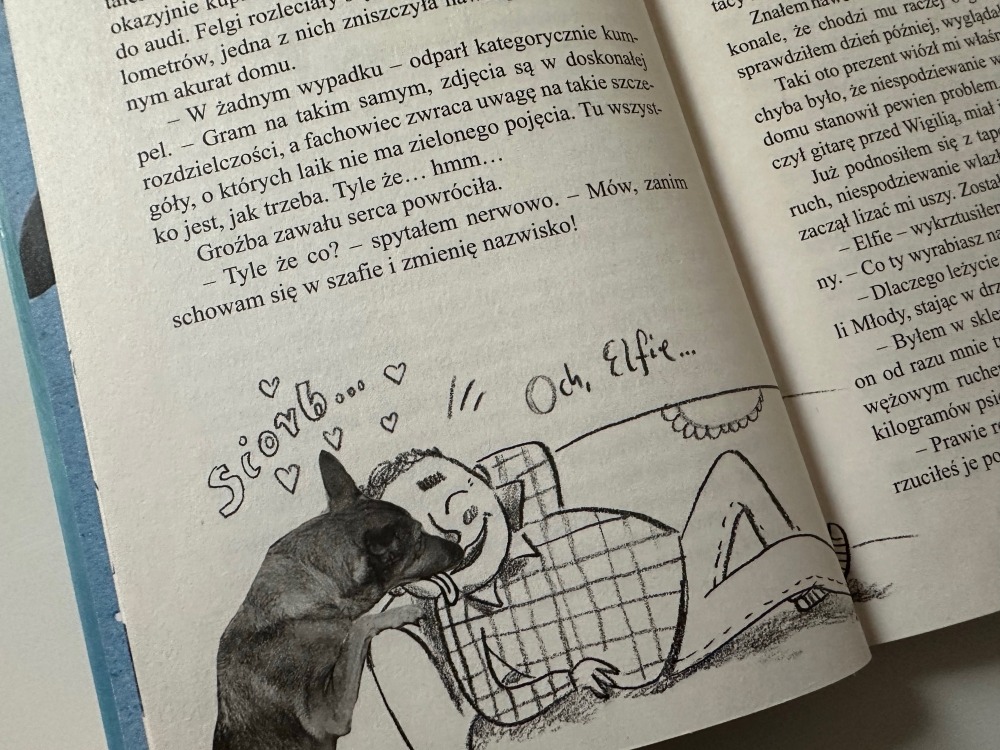 okazyjnie
do audi. Felgi rozleciały
lometrów, jedna z nich zniszczyła
nym akurat domu.
– W żadnym wypadku – odparł kategorycznie kum-
pel. – Gram na takim samym, zdjęcia są w doskonałej
rozdzielczości, a fachowiec zwraca uwagę na takie szcze-
góły, o których laik nie ma zielonego pojęcia. Tu wszyst-
ko jest, jak trzeba. Tyle że… hmm…
Groźba zawału serca powróciła.
– Tyle że co? – spytałem nerwowo. – Mów, zanim
schowam się w szafie i zmienię nazwisko!
Siorb...
Och, Elfie...
Znałem
konale, że chodzi mu raczej o
sprawdziłem dzień później,
Taki oto prezent wiózł mi
chyba było, że niespodziewanie w
domu stanowił pewien problem.
czył gitarę przed Wigilią, miał
Już podnosiłem się z
ruch, niespodziewanie
zaczął lizać mi uszy.
– Elfie – wykrztusiłem
ny. – Co ty wyrabiasz
– Dlaczego leżycie
li Młody, stając w
– Byłem w
on od razu mnie
wężowym
kilogramów
– Prawie
rzuciłeś je